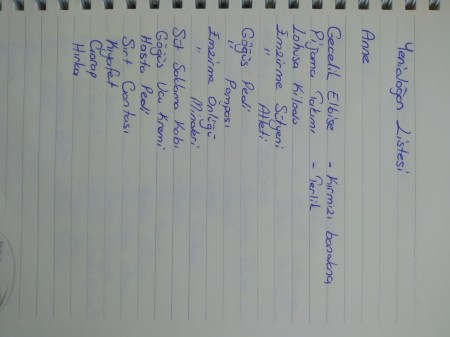 Yenidoğan Listesi
Anne
Gecelik Elbise - Kırmızı bandana,
Pijama Takımı - Terlik
Lohusa Kilodu
Emzirme Sütyeni
" Atleti
Göğüs Pedi
" Pompası
Emzirme Önlüğü
" Minderi
Süt Saklama Kabı
Göğüs Ucu Kremi
Hasta Pedi
Sırt Çantası
Kıyafet
Çorap
Hırka